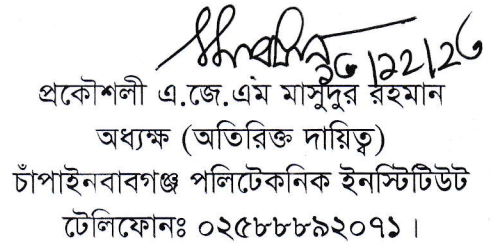 প্রকৌশলী এ.জে.এম মাসুদুর রহমান
অধ্যক্ষ (অতিরিক্ত দায়িত্ব)
চাঁপাইনবাবগঞ্জ পলিটেকনিক ইনস্টিটিউট
টেলিফোনঃ ০২৫৮৮৮৯২০৭১ ।